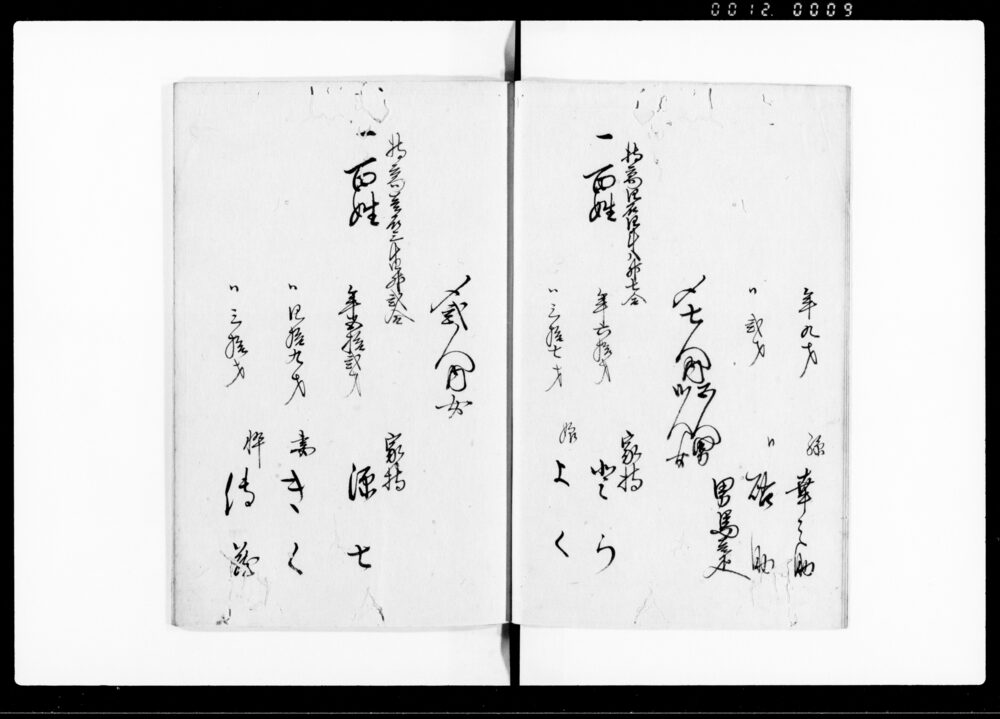 0012.0009
年九才 孫 幸之助
〃弐才 〃 助
男馬壱疋
〆七人内 四人男 三人女
持高四石四斗八升七合
一百姓 年六拾才 家持 とら
〃三拾七才 娘 よく
〆弐人内女
持高壱石三斗四升弐合
一百姓 年五拾弐才 家持 源七
〃四拾九才 妻 きく
〃三拾才 忰 傳蔵